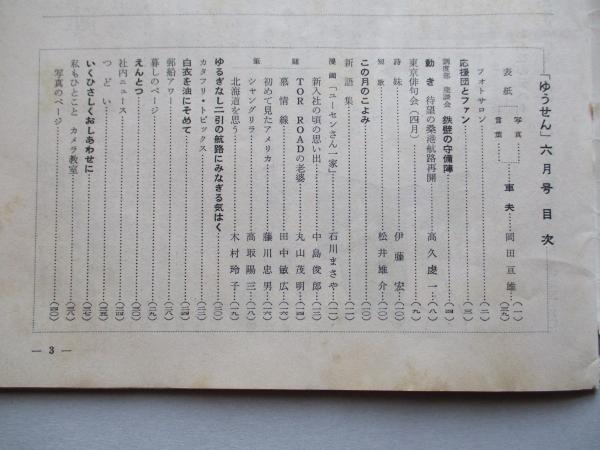 「ゆうせん」六月号 目次
表紙 写真 岡田亘雄 (一)
言葉 車夫
フォトサロン (二)
応援団とファン (三)
座談会 鉄壁の守備陣 (四)
動き 待望の桑港航路再開 高久虚一 (八)
東京俳句会(四月) (九)
詩 妹 伊藤宏 (一〇)
短歌 松井雄介 (一〇)
この月のこよみ (一〇)
新語集 (一一)
漫画 「ユーセンさん一家」 石川まさや (一二)
新入社の頃の思い出 中島俊郎 (一三)
随 TOR ROADの老婆 丸山茂明 (一四)
慕情線 田中敏広 (一六)
初めて見たアメリカ 藤川忠男
筆 シャングリラ 高取陽三 (一八)
北海道を思う 木村玲子 (一九)
ゆるぎなし二引の航路にみなぎる気はく (二〇)
カタフリ・トピックス
白衣を油にそめて
郵船アワー
暮しのページ
えんとつ
社内ニュース
つどい
いくひさしくおしあわせに
私もひとこと カメラ教室
写真のページ
— 3 —